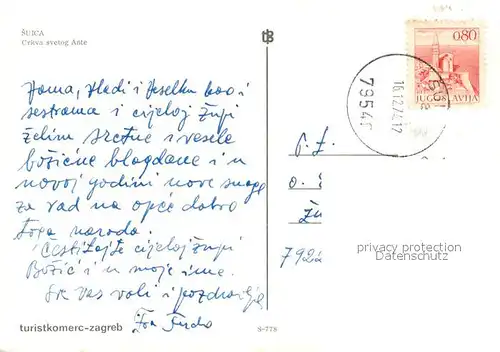 ŠUICA
Crkva svetog Ante
Vladi i Veselku kao i
sestrama i cijeloj župi
želim sretne i vesele
božićne blagdane i u
novoj godini nove snage
za rad na opće dobro
naroda.
Čestitajte cijeloj župi
Božić i u moje ime.
Sve vas voli i pozdravlja
Fra
turistkomerc-zagreb
S-778
0.80
JUGOSLAVIJA
16.12.74.17
7954
792
privacy protection
Datenschutz